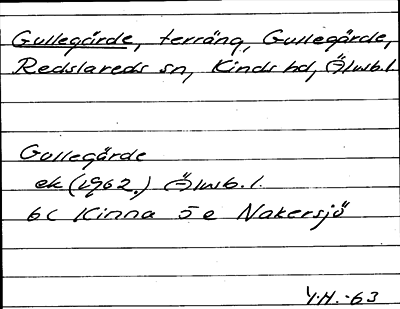 Gullegärde, terräng, Gullegärde,
Redslareds sn, Kinds hd, Älvsb. l.
Gullegärde
ek (1962.) Älvsb. l.
6C Kinna 5e Nakersjö
Y.H.-63